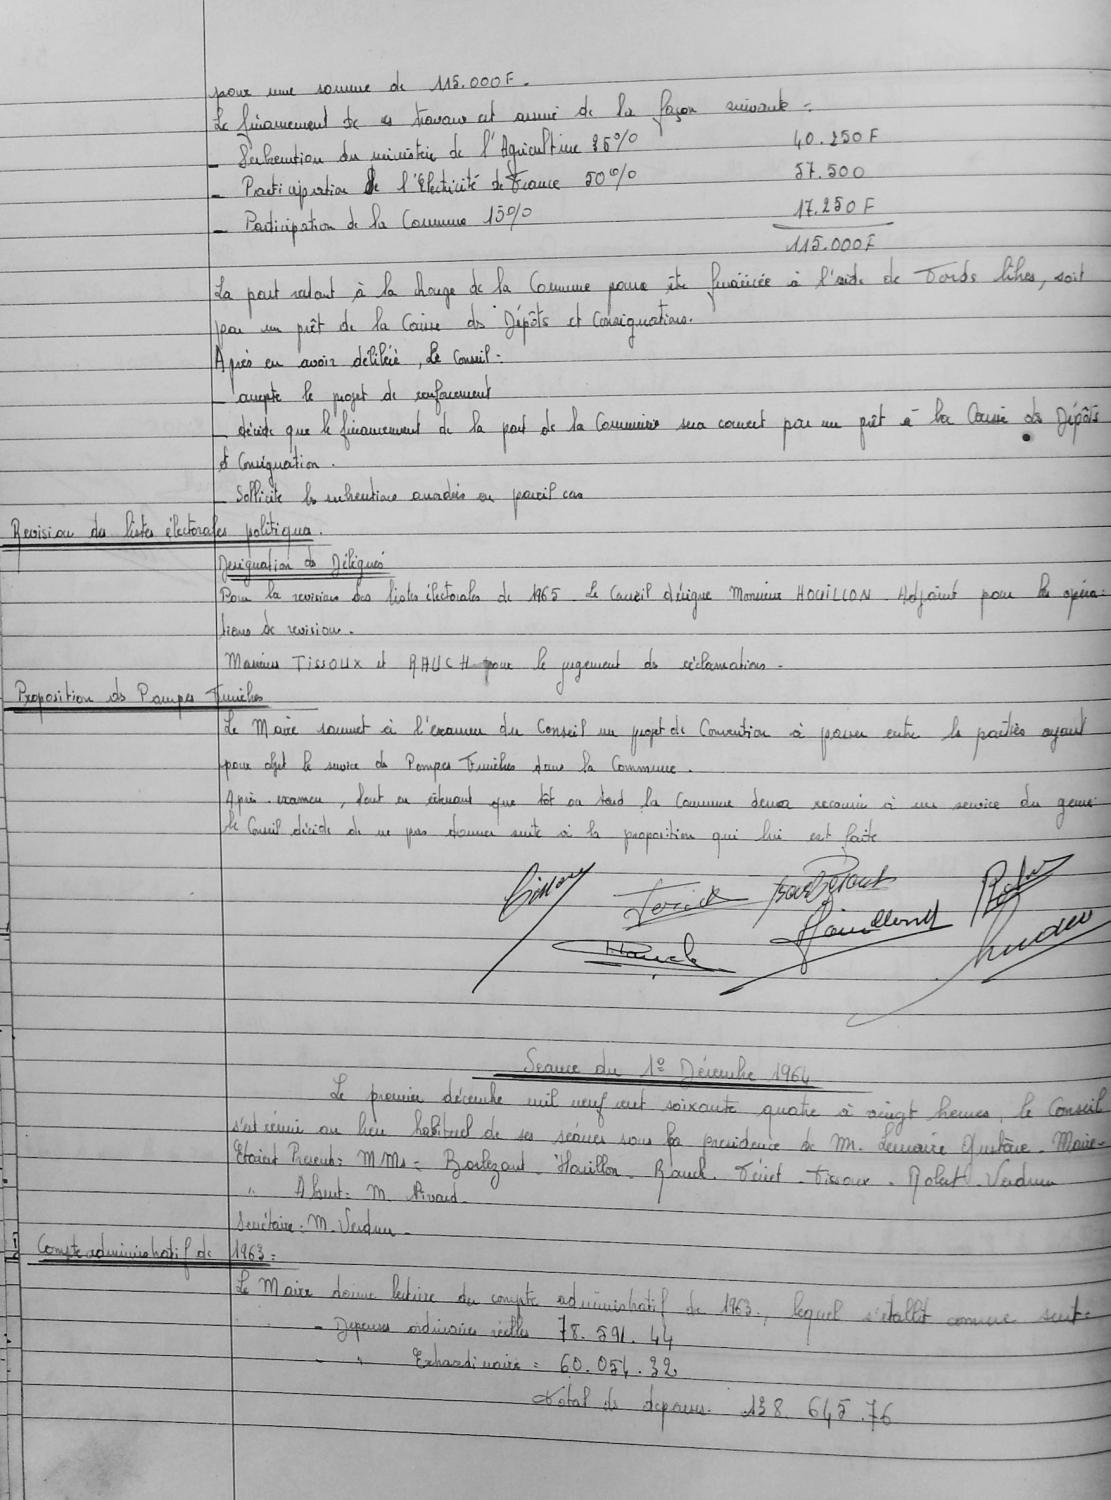 pour une somme de 115.000F.
Le financement de ces travaux est assuré de la façon suivante :
- Subvention du ministère de l'Agriculture 35% 40.250F
- Participation de l'Electricité de France 50% 57.500
- Participation de la Commune 15% 17.250F
115.000F
La part restant à la charge de la Commune pourra être financée à l'aide de Fonds libres, soit
par un prêt de la Caisse des Dépôts et Consignations.
Après en avoir délibéré, Le Conseil :
- accepte le projet de renforcement
- décide que le financement de la part de la Commune sera couvert par un prêt à la Caisse des Dépôts
et Consignation.
- Sollicite les subventions accordées en pareil cas
Revision des listes électorales politiques.
Designation des Délégués
Pour la revision des listes électorales de 1965. Le Conseil désigne Monsieur HOUILLON Adjoint pour les opéra-
tions de revision.
Messieurs TISSOUX et RAUCH pour le jugement des réclamations.
Proposition des Pompes Funèbres
Le Maire soumet à l'examen du Conseil un projet de Convention à passer entre les parties ayant
pour objet le service des Pompes Funèbres dans la Commune.
Après examen, tout en estimant que tôt ou tard la Commune devra recourir à un service du genre
le Conseil décide de ne pas donner suite à la proposition qui lui est faite
Rauch
Séance du 1º Décembre 1964
Le premier décembre mil neuf cent soixante quatre à vingt heures, le Conseil
s'est réuni au lieu habituel de ses séances sous la présidence de M. Lemaire Gustave. Maire.
Etaient Présents : MMs = Houillon. Rauch. Tissoux. Verdun
" Absent : M.
Secrétaire : M. Verdun.
Compte administratif de 1963 :
Le Maire donne lecture du compte administratif de 1963, lequel s'établit comme suit :
- Dépenses ordinaires réelles 78.591.44
- " Extraordinaire = 60.054.32
Total des dépenses. 138.645.76